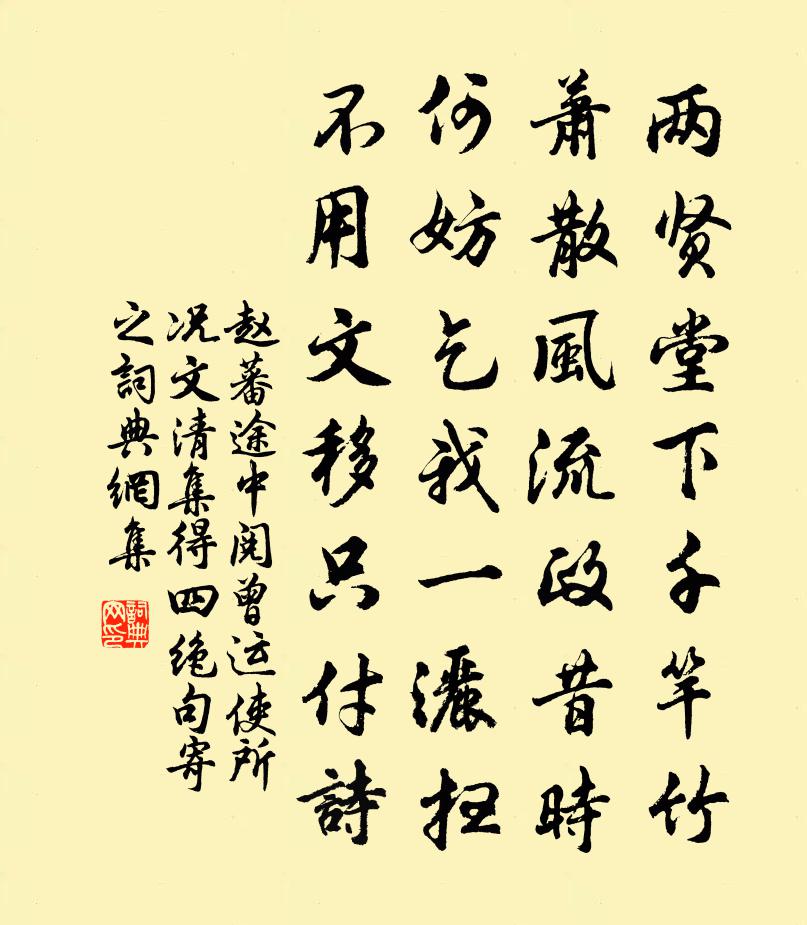 两贤堂下千竿竹
蕭散風流政昔時
何妨乞我一灑扫
不用文移只付詩
赵蕃途中阅曾运使所
况文清集得四绝句寄
之詞典網集
詞典网印